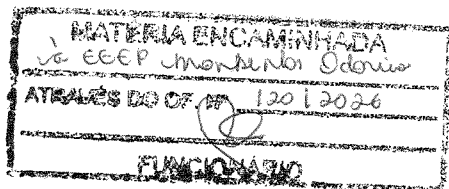 MATÉRIA ENCAMINHADA
à EEEP Monsenhor Odorico
ATRAVÉS DO OF. Nº 120 / 2026
FUNCIONÁRIO